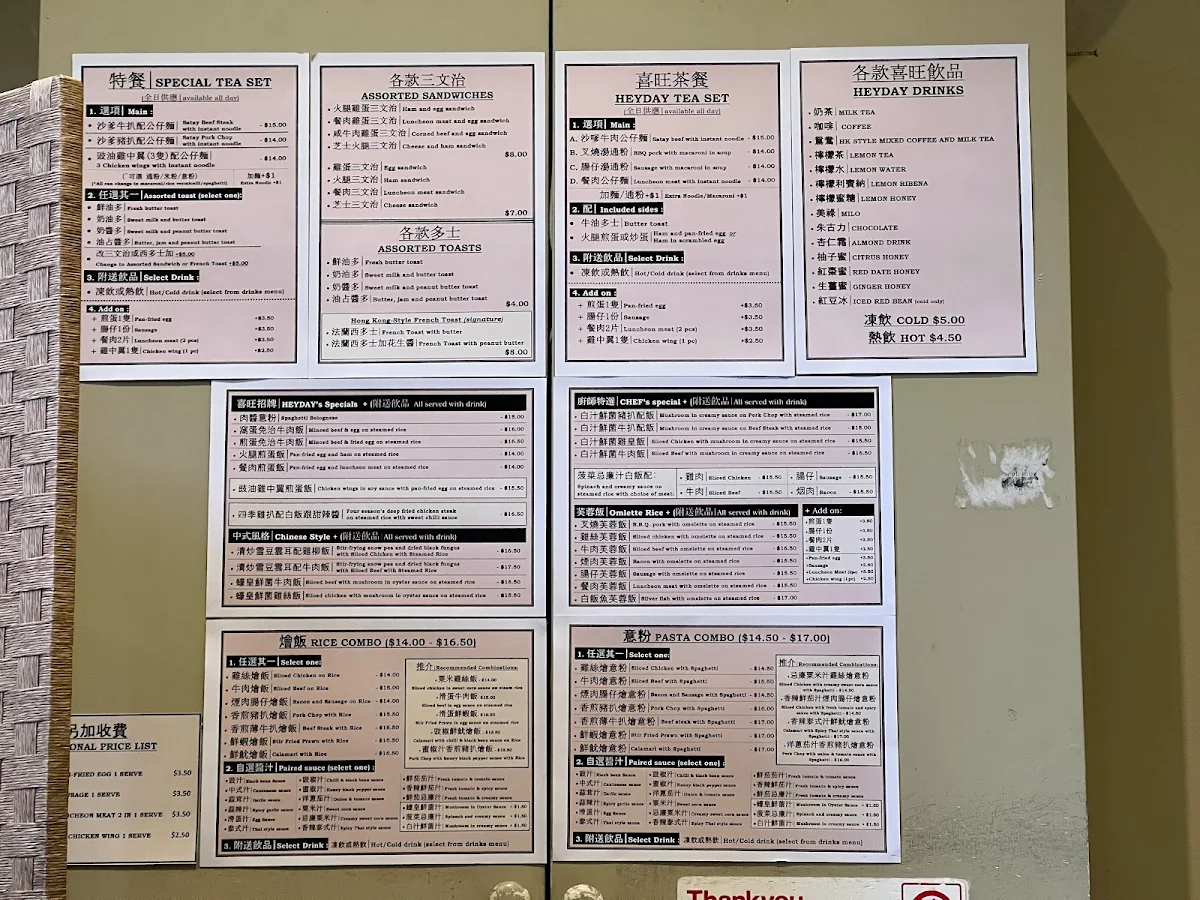 特餐 | SPECIAL TEA SET
(全日供應 | available all day)
1. 選項 | Main :
• 沙爹牛扒配公仔麵 | Satay Beef Steak with instant noodle - $15.00
• 沙爹豬扒配公仔麵 | Satay Pork Chop with instant noodle - $14.00
• 豉油雞中翼(3隻)配公仔麵 | - $14.00
3 Chicken wings with instant noodle
(可選 通粉/米粉/意粉) 加麵+$1
(*All can change to macaroni/rice vermicelli/spaghetti) Extra Noodle +$1
2. 任選其一 | Assorted toast (select one):
• 鮮油多 | Fresh butter toast
• 奶油多 | Sweet milk and butter toast
• 奶醬多 | Sweet milk and peanut butter toast
• 油占醬多 | Butter, jam and peanut butter toast
• 改三文治或西多士加 +$5.00
Change to Assorted Sandwich or French Toast +$5.00
3. 附送飲品 | Select Drink :
• 凍飲或熱飲 | Hot/Cold drink (select from drinks menu)
4. Add on :
+ 煎蛋1隻 | Pan-fried egg +$3.50
+ 腸仔1份 | Sausage +$3.50
+ 餐肉2片 | Luncheon meat (2 pcs) +$3.50
+ 雞中翼1隻 | Chicken wing (1 pc) +$2.50
各款三文治
ASSORTED SANDWICHES
• 火腿雞蛋三文治 | Ham and egg sandwich
• 餐肉雞蛋三文治 | Luncheon meat and egg sandwich
• 咸牛肉雞蛋三文治 | Corned beef and egg sandwich
• 芝士火腿三文治 | Cheese and ham sandwich
$8.00
• 雞蛋三文治 | Egg sandwich
• 火腿三文治 | Ham sandwich
• 餐肉三文治 | Luncheon meat sandwich
• 芝士三文治 | Cheese sandwich
$7.00
各款多士
ASSORTED TOASTS
• 鮮油多 | Fresh butter toast
• 奶油多 | Sweet milk and butter toast
• 奶醬多 | Sweet milk and peanut butter toast
• 油占醬多 | Butter, jam and peanut butter toast
$4.00
Hong Kong-Style French Toast (signature)
• 法蘭西多士 | French Toast with butter
• 法蘭西多士加花生醬 | French Toast with peanut butter
$8.00
喜旺茶餐
HEYDAY TEA SET
(全日供應 | available all day)
1. 選項 | Main :
A. 沙嗲牛肉公仔麵 | Satay beef with instant noodle - $15.00
B. 叉燒湯通粉 | BBQ pork with macaroni in soup - $14.00
C. 腸仔湯通粉 | Sausage with macaroni in soup - $14.00
D. 餐肉公仔麵 | Luncheon meat with instant noodle - $14.00
加麵/通粉+$1 | Extra Noodle/Macaroni +$1
2. 配 | Included sides :
• 牛油多士 | Butter toast
• 火腿煎蛋或炒蛋 | Ham and pan-fried egg or Ham in scrambled egg
3. 附送飲品 | Select Drink :
• 凍飲或熱飲 | Hot/Cold drink (select from drinks menu)
4. Add on :
+ 煎蛋1隻 | Pan-fried egg +$3.50
+ 腸仔1份 | Sausage +$3.50
+ 餐肉2片 | Luncheon meat (2 pcs) +$3.50
+ 雞中翼1隻 | Chicken wing (1 pc) +$2.50
各款喜旺飲品
HEYDAY DRINKS
• 奶茶 | MILK TEA
• 咖啡 | COFFEE
• 鴛鴦 | HK STYLE MIXED COFFEE AND MILK TEA
• 檸檬茶 | LEMON TEA
• 檸檬水 | LEMON WATER
• 檸檬利賓納 | LEMON RIBENA
• 檸檬蜜糖 | LEMON HONEY
• 美祿 | MILO
• 朱古力 | CHOCOLATE
• 杏仁霜 | ALMOND DRINK
• 柚子蜜 | CITRUS HONEY
• 紅棗蜜 | RED DATE HONEY
• 生薑蜜 | GINGER HONEY
• 紅豆冰 | ICED RED BEAN (cold only)
凍飲 COLD $5.00
熱飲 HOT $4.50
喜旺招牌 | HEYDAY's Specials + (附送飲品 All served with drink)
• 肉醬意粉 | Spaghetti Bolognese - $15.00
• 窩蛋免治牛肉飯 | Minced beef & egg on steamed rice - $16.00
• 煎蛋免治牛肉飯 | Minced beef & fried egg on steamed rice - $16.50
• 火腿煎蛋飯 | Pan-fried egg and ham on steamed rice - $14.00
• 餐肉煎蛋飯 | Pan-fried egg and luncheon meat on steamed rice - $14.00
• 豉油雞中翼煎蛋飯 | Chicken wings in soy sauce with pan-fried egg on steamed rice - $15.50
• 四季雞扒配白飯跟甜辣醬 | Four season's deep fried chicken steak on steamed rice with sweet chili sauce - $16.50
中式風格 | Chinese Style + (附送飲品 | All served with drink)
• 清炒雪豆雲耳配雞柳飯 | Stir-frying snow pea and dried black fungus with Sliced Chicken with Steamed Rice - $16.50
• 清炒雪豆雲耳配牛肉飯 | Stir-frying snow pea and dried black fungus with Sliced Beef with Steamed Rice - $17.50
• 蠔皇鮮菌牛肉飯 | Sliced beef with mushroom in oyster sauce on steamed rice - $15.50
• 蠔皇鮮菌雞絲飯 | Sliced chicken with mushroom in oyster sauce on steamed rice - $15.50
廚師特選 | CHEF's special + (附送飲品 | All served with drink)
• 白汁鮮菌豬扒配飯 | Mushroom in creamy sauce on Pork Chop with steamed rice - $17.00
• 白汁鮮菌牛扒配飯 | Mushroom in creamy sauce on Beef Steak with steamed rice - $18.00
• 白汁鮮菌雞皇飯 | Sliced Chicken with mushroom in creamy sauce on steamed rice - $15.50
• 白汁鮮菌牛肉飯 | Sliced Beef with mushroom in creamy sauce on steamed rice - $15.50
菠菜忌廉汁白飯配:
Spinach and creamy sauce on steamed rice with choice of meat:
• 雞肉 | Sliced Chicken - $15.50 • 腸仔 | Sausage - $15.50
• 牛肉 | Sliced Beef - $16.50 • 烟肉 | Bacon - $15.50
芙蓉飯 | Omlette Rice + (附送飲品 | All served with drink)
• 叉燒芙蓉飯 | B.B.Q. pork with omelette on steamed rice - $15.50
• 雞絲芙蓉飯 | Sliced chicken with omelette on steamed rice - $15.50
• 牛肉芙蓉飯 | Sliced beef with omelette on steamed rice - $15.50
• 煙肉芙蓉飯 | Bacon with omelette on steamed rice - $15.50
• 腸仔芙蓉飯 | Sausage with omelette on steamed rice - $15.50
• 餐肉芙蓉飯 | Luncheon meat with omelette on steamed rice - $15.50
• 白飯魚芙蓉飯 | Silver fish with omelette on steamed rice - $17.00
+ Add on:
+煎蛋1隻 +3.50
+腸仔1份 +3.50
+餐肉2片 +3.50
+雞中翼1隻 +2.50
+Pan-fried egg +3.50
+Sausage +3.50
+Luncheon Meat (2pc) +3.50
+Chicken wing (1pc) +2.50
燴飯 RICE COMBO ($14.00 - $16.50)
1. 任選其一 | Select one:
• 雞絲燴飯 | Sliced Chicken on Rice - $14.00
• 牛肉燴飯 | Sliced Beef on Rice - $15.00
• 煙肉腸仔燴飯 | Bacon and Sausage on Rice - $14.00
• 香煎豬扒燴飯 | Pork Chop with Rice - $15.50
• 香煎薄牛扒燴飯 | Beef Steak with Rice - $16.50
• 鮮蝦燴飯 | Stir Fried Prawn with Rice - $16.50
• 鮮魷燴飯 | Calamari with Rice - $16.50
推介 | Recommended Combinations:
• 粟米雞絲飯 - $14.00
Sliced chicken in sweet corn sauce on steam rice
• 滑蛋牛肉飯 - $15.00
Sliced beef in egg sauce on steamed rice
• 滑蛋鮮蝦飯 - $16.50
Stir Fried Prawn in egg sauce on steamed rice
• 豉椒鮮魷燴飯 - $16.50
Calamari with chilli & black bean sauce on rice
• 蜜椒汁香煎豬扒燴飯 - $15.50
Pork Chop with honey black pepper sauce with Rice
2. 自選醬汁 | Paired sauce (select one) :
• 豉汁 | Black bean Sauce • 豉椒汁 | Chilli & black bean sauce • 鮮茄茄汁 | Fresh tomato & tomato sauce
• 中式汁 | Cantonese sauce • 蜜椒汁 | Honey black pepper sauce • 香辣鮮茄汁 | Fresh tomato & spicy sauce
• 蒜茸汁 | Garlic sauce • 洋蔥茄汁 | Onion & tomato sauce • 鮮茄忌廉汁 | Fresh tomato & creamy sauce
• 蒜辣汁 | Spicy garlic sauce • 粟米汁 | Sweet corn sauce • 蠔皇鮮菌汁 | Mushroom in Oyster Sauce + $1.50
• 滑蛋汁 | Egg Sauce • 忌廉粟米汁 | Creamy sweet corn sauce • 菠菜忌廉汁 | Spinach and creamy sauce + $1.50
• 泰式汁 | Thai style sauce • 香辣泰式汁 | Spicy Thai style sauce • 白汁鮮菌汁 | Mushroom in creamy sauce + $1.50
3. 附送飲品 | Select Drink : 凍飲或熱飲 | Hot/Cold drink (select from drinks menu)
意粉 PASTA COMBO ($14.50 - $17.00)
1. 任選其一 | Select one:
• 雞絲燴意粉 | Sliced Chicken with Spaghetti - $14.50
• 牛肉燴意粉 | Sliced Beef with Spaghetti - $15.50
• 煙肉腸仔燴意粉 | Bacon and Sausage with Spaghetti - $14.50
• 香煎豬扒燴意粉 | Pork Chop with Spaghetti - $16.00
• 香煎薄牛扒燴意粉 | Beef steak with Spaghetti - $17.00
• 鮮蝦燴意粉 | Stir Fried Prawn with Spaghetti - $17.00
• 鮮魷燴意粉 | Calamari with Spaghetti - $17.00
推介 | Recommended Combinations:
• 忌廉粟米汁雞絲燴意粉
Sliced Chicken with creamy sweet corn sauce with Spaghetti - $14.50
• 香辣鮮茄汁煙肉腸仔燴意粉
Sliced Chicken with fresh tomato and spicy sauce with Spaghetti - $14.50
• 香辣泰式汁鮮魷燴意粉
Calamari with Spicy Thai style sauce with Spaghetti - $17.00
• 洋蔥茄汁香煎豬扒燴意粉
Pork Chop with onion and tomato sauce with Spaghetti - $16.00
2. 自選醬汁 | Paired sauce (select one) :
• 豉汁 | Black bean Sauce • 豉椒汁 | Chilli & black bean sauce • 鮮茄茄汁 | Fresh tomato & tomato sauce
• 中式汁 | Cantonese sauce • 蜜椒汁 | Honey black pepper sauce • 香辣鮮茄汁 | Fresh tomato & spicy sauce
• 蒜茸汁 | Garlic sauce • 洋蔥茄汁 | Onion & tomato sauce • 鮮茄忌廉汁 | Fresh tomato & creamy sauce
• 蒜辣汁 | Spicy garlic sauce • 粟米汁 | Sweet corn sauce • 蠔皇鮮菌汁 | Mushroom in Oyster Sauce + $1.50
• 滑蛋汁 | Egg Sauce • 忌廉粟米汁 | Creamy sweet corn sauce • 菠菜忌廉汁 | Spinach and creamy sauce + $1.50
• 泰式汁 | Thai style sauce • 香辣泰式汁 | Spicy Thai style sauce • 白汁鮮菌汁 | Mushroom in creamy sauce + $1.50
3. 附送飲品 | Select Drink : 凍飲或熱飲 | Hot/Cold drink (select from drinks menu)
另加收費
ONAL PRICE LIST
-FRIED EGG 1 SERVE $3.50
SAGE 1 SERVE $3.50
CHEON MEAT 2 IN 1 SERVE $3.50
CHICKEN WING 1 SERVE $2.50
Thankyou